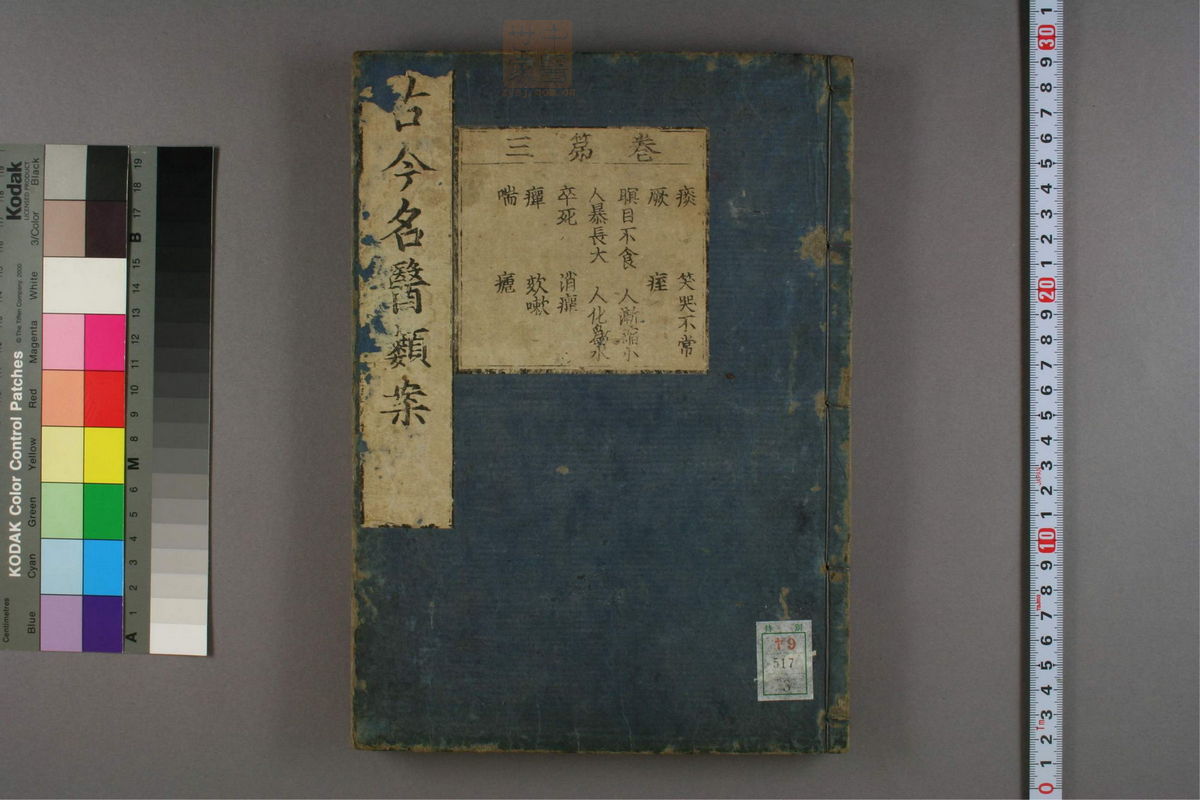 古今名醫類案
卷第三
痰 笑哭不常
厥 痓
瞑目不食 人漸縮小
人暴長大 人化為水
卒死 消癉
癉 欬嗽
喘 瘧
特別
ヤ9
517
3
Kodak
LICENSED PRODUCT
KODAK Color Control Patches
© The Tiffen Company, 2000
Centimetres
Blue Cyan Green Yellow Red Magenta White 3/Color Black
A 1 2 3 4 5 6 M 8 9 10 11 12 13 14 15 B 17 18 19
0 1 2 3 4 5 6 7 8 9 10 1 2 3 4 5 6 7 8 9 20 1 2 3 4 5 6 7 8 9 30 1
JAPAN